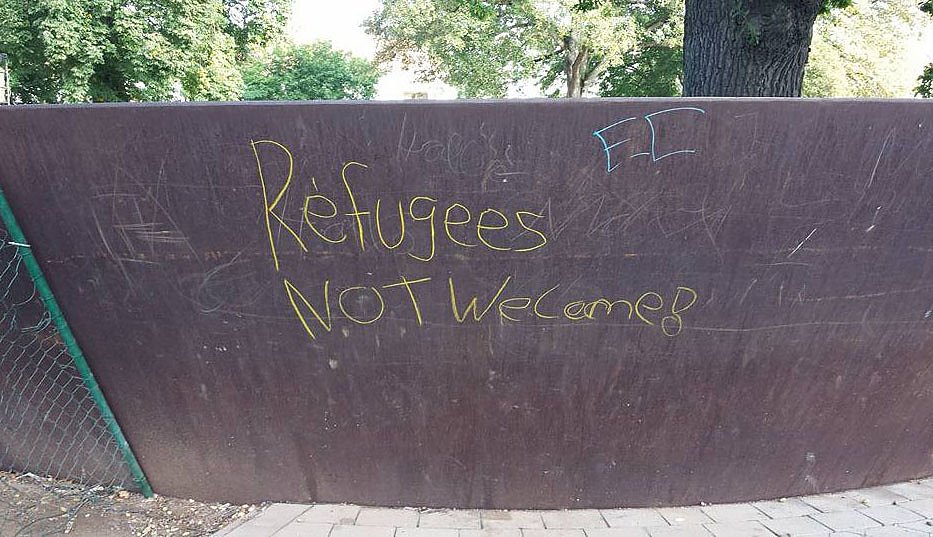 E.C
Refugees
NOT Welcome!